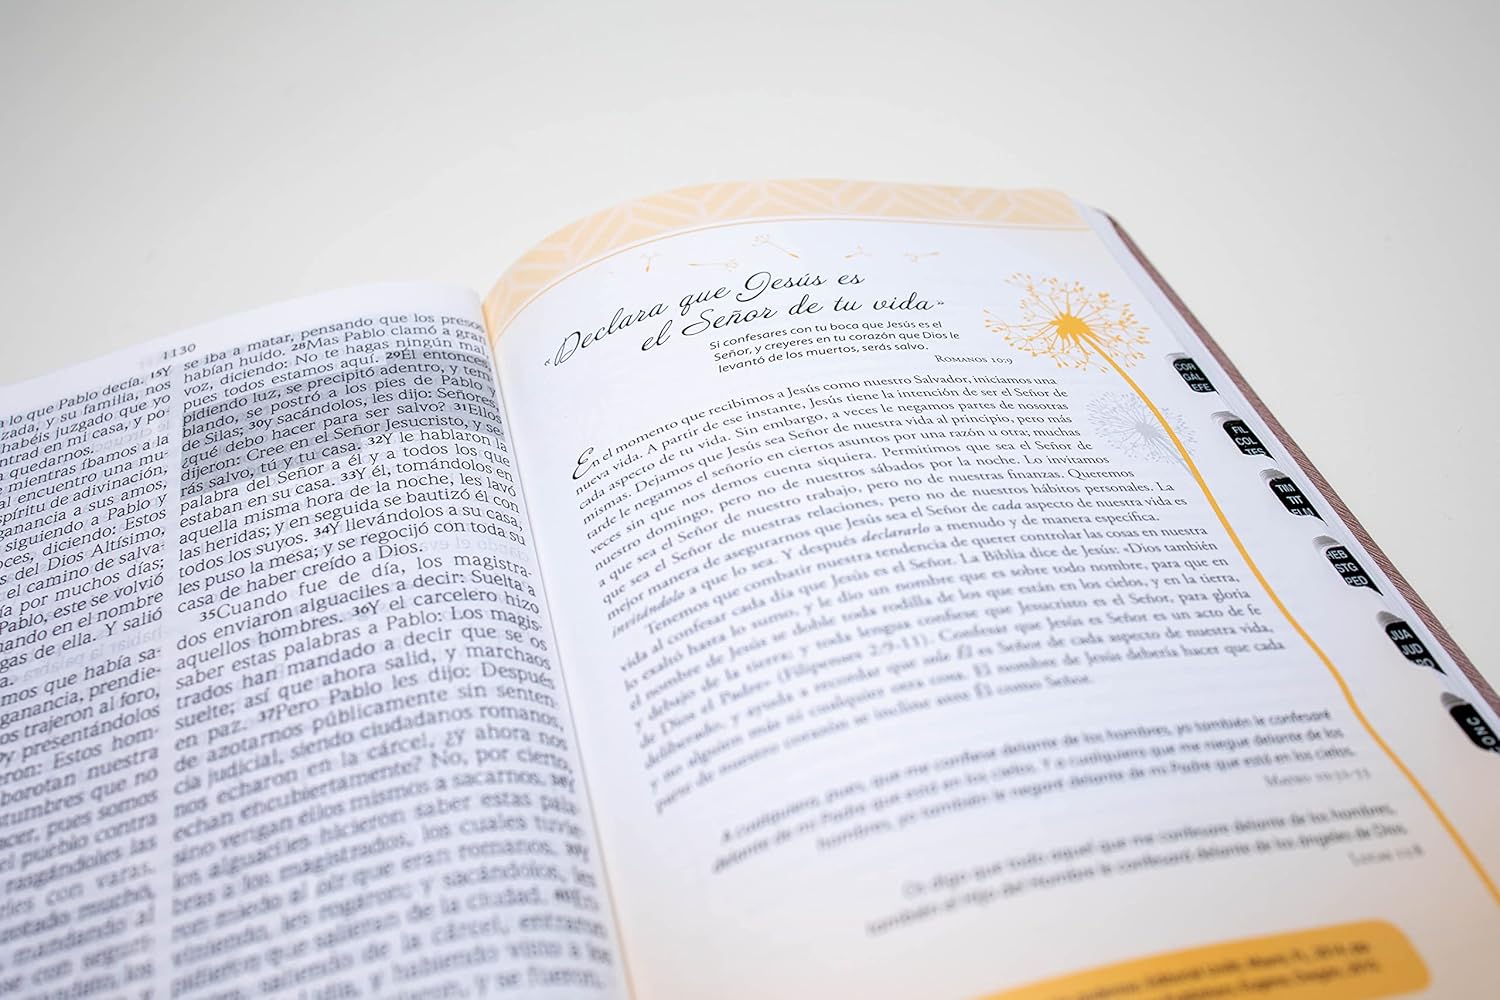 1130
lo que Pablo decía. 15Y
zada, y su familia, nos
habéis juzgado que yo
entrad en mi casa, y po-
quedarnos.
mientras íbamos a la
al encuentro una mu-
espíritu de adivinación,
ganancia a sus amos,
siguiendo a Pablo y
voces, diciendo: Estos
s del Dios Altísimo,
el camino de salva-
por muchos días;
Pablo, este se volvió
mando en el nombre
gas de ella. Y salió
a.
mos que había sa-
ganancia, prendie-
los trajeron al foro,
y presentándolos
ron: Estos hom-
borotan nuestra
tumbres que no
cer, pues somos
el pueblo contra
rasgándoles las
les con varas.
mandando al
se iba a matar, pensando que los presos
habían huido. 28Mas Pablo clamó a gran
voz, diciendo: No te hagas ningún mal,
pues todos estamos aquí. 29Él entonces,
pidiendo luz, se precipitó adentro, y tem-
blando, se postró a los pies de Pablo y
de Silas; 30y sacándolos, les dijo: Señores,
¿qué debo hacer para ser salvo? 31Ellos
dijeron: Cree en el Señor Jesucristo, y se-
rás salvo, tú y tu casa. 32Y le hablaron la
palabra del Señor a él y a todos los que
estaban en su casa. 33Y él, tomándolos en
aquella misma hora de la noche, les lavó
las heridas; y en seguida se bautizó él con
todos los suyos. 34Y llevándolos a su casa,
les puso la mesa; y se regocijó con toda su
casa de haber creído a Dios.
35Cuando fue de día, los magistra-
dos enviaron alguaciles a decir: Suelta a
aquellos hombres. 36Y el carcelero hizo
saber estas palabras a Pablo: Los magis-
trados han mandado a decir que se os
suelte; así que ahora salid, y marchaos
en paz. 37Pero Pablo les dijo: Después
de azotarnos públicamente sin senten-
cia judicial, siendo ciudadanos romanos,
nos echaron en la cárcel, ¿y ahora nos
echan encubiertamente? No, por cierto,
sino vengan ellos mismos a sacarnos. 38Y
los alguaciles hicieron saber estas pala-
bras a los magistrados, los cuales tuvie-
ron miedo al oír que eran romanos. 39Y
viniendo, les rogaron; y sacándolos, les
pidieron que salieran de la ciudad.
saliendo de la cárcel, entraron
«Declara que Jesús es
el Señor de tu vida»
Si confesares con tu boca que Jesús es el
Señor, y creyeres en tu corazón que Dios le
levantó de los muertos, serás salvo.
Romanos 10:9
En el momento que recibimos a Jesús como nuestro Salvador, iniciamos una
nueva vida. A partir de ese instante, Jesús tiene la intención de ser el Señor de
cada aspecto de tu vida. Sin embargo, a veces le negamos partes de nosotras
mismas. Dejamos que Jesús sea Señor de nuestra vida al principio, pero más
tarde le negamos el señorío en ciertos asuntos por una razón u otra; muchas
veces sin que nos demos cuenta siquiera. Permitimos que sea el Señor de
nuestro domingo, pero no de nuestros sábados por la noche. Lo invitamos
a que sea el Señor de nuestro trabajo, pero no de nuestras finanzas. Queremos
que sea el Señor de nuestras relaciones, pero no de nuestros hábitos personales. La
mejor manera de asegurarnos que Jesús sea el Señor de cada aspecto de nuestra vida es
invitándolo a que lo sea. Y después declararlo a menudo y de manera específica.
Tenemos que combatir nuestra tendencia de querer controlar las cosas en nuestra
vida al confesar cada día que Jesús es el Señor. La Biblia dice de Jesús: «Dios también
lo exaltó hasta lo sumo, y le dio un nombre que es sobre todo nombre, para que en
el nombre de Jesús se doble toda rodilla de los que están en los cielos, y en la tierra,
y debajo de la tierra; y toda lengua confiese que Jesucristo es el Señor, para gloria
de Dios el Padre» (Filipenses 2:9-11). Confesar que Jesús es Señor es un acto de fe
deliberado, y ayuda a recordar que solo Él es Señor de cada aspecto de nuestra vida,
y no alguien más ni cualquier otra cosa. El nombre de Jesús debería hacer que cada
parte de nuestro corazón se incline ante Él como Señor.
A cualquiera, pues, que me confiese delante de los hombres, yo también le confesaré
delante de mi Padre que está en los cielos. Y a cualquiera que me niegue delante de los
hombres, yo también le negaré delante de mi Padre que está en los cielos.
Mateo 10:32-33
Os digo que todo aquel que me confesare delante de los hombres,
también el Hijo del Hombre le confesará delante de los ángeles de Dios.
Lucas 12:8
COR
GÁL
EFE
FIL
COL
TES
TIM
TIT
HEB
STG
PED
JUA
JUD
CONC